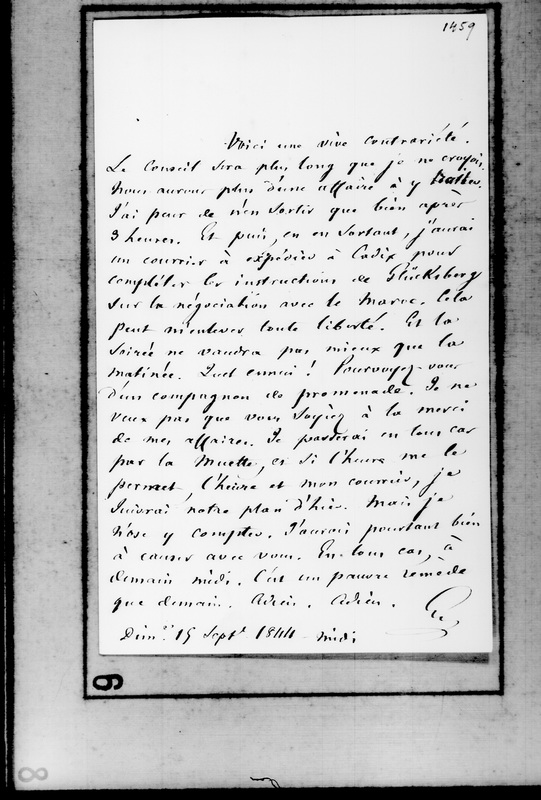 1459
Voici une vive contrariété.
Le Conseil sera plus long que je ne croyois.
Nous aurons plus d'une affaire à y traiter.
J'ai peur de n'en sortir que bien après
3 heures. Et puis, en en sortant, j'aurai
un courrier à expédier à Cadix pour
compléter les instructions de Glücksberg
sur la négociation avec le Maroc. Cela
peut m'enlever toute liberté. Et la
soirée ne vaudra pas mieux que la
matinée. Quel ennui ! Pourvoyez-vous
d'un compagnon de promenade. Je ne
veux pas que vous soyiez à la merci
de mes affaires. Je passerai en tous cas
par la Muette, et si l'heure me le
permet, l'heure et mon courrier, je
suivrai notre plan d'hier. Mais je
n'ose y compter. J'aurais pourtant bien
à causer avec vous. En tous cas, à
demain midi. C'est un pauvre remède
que demain. Adieu. Adieu.
Dim. 15 Sept. 1844 - midi
9
8